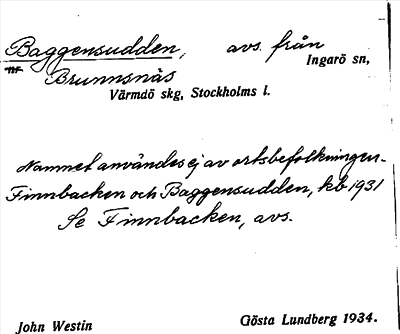 Baggensudden, avs. från
Ingarö sn,
nr Brunnsnäs
Värmdö skg, Stockholms l.
Namnet användes ej av ortsbefolkningen.
Finnbacken och Baggensudden, kb 1931
Se Finnbacken, avs.
John Westin Gösta Lundberg 1934.